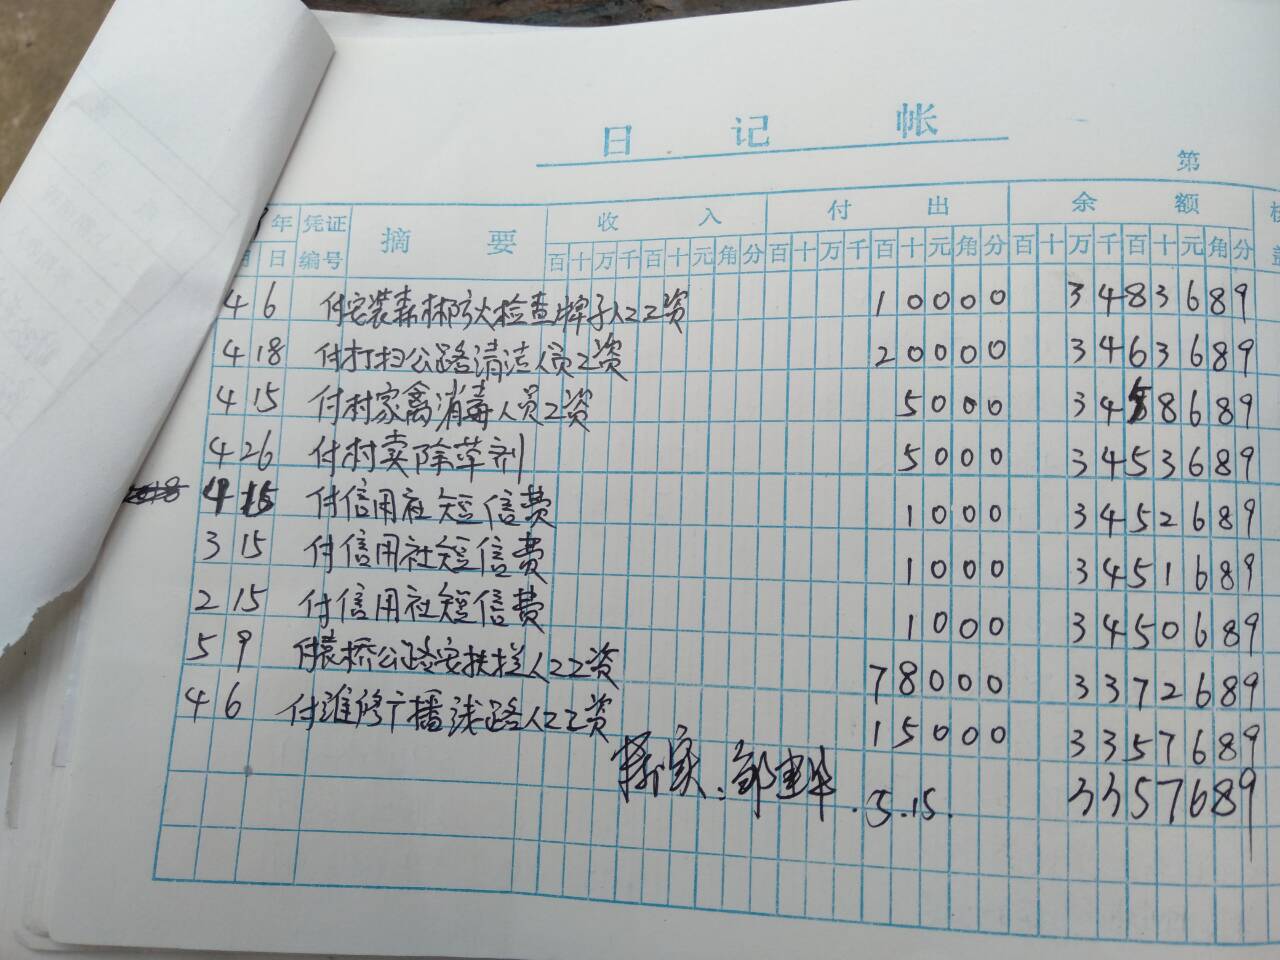 日记帐
第
年 凭证 摘要 收入 付出 余额
日 编号 百十万千百十元角分 百十万千百十元角分 百十万千百十元角分
4 6 付安装森林防火检查牌子人工工资 10000 3483689
4 18 付打扫公路清洁人员工资 20000 3463689
4 15 付村家禽消毒人员工资 5000 3458689
4 26 付村卖除草剂 5000 3453689
4 15 付信用社短信费 1000 3452689
3 15 付信用社短信费 1000 3451689
2 15 付信用社短信费 1000 3450689
5 9 付袁桥公路安扶拦人工工资 78000 3372689
4 6 付维修广播线路人工工资 15000 3357689
邹建华.5.15. 3357689